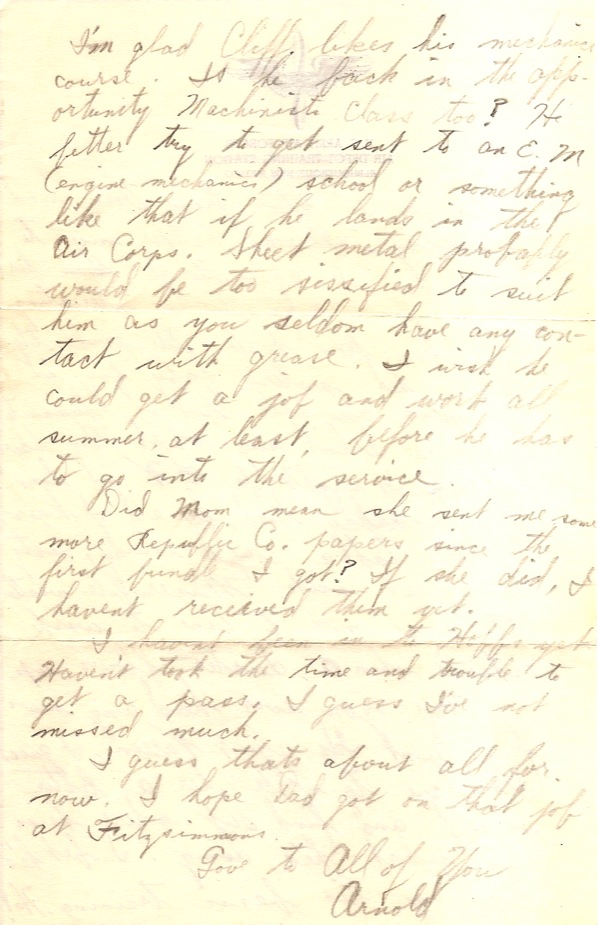 I'm glad Cliff likes his mechanics
course. Is he back in the opp-
ortunity Machinists Class too? He
better try to get sent to an E. M
(engine mechanics) school or something
like that if he lands in the
Air Corps. Sheet metal probably
would be too sissified to suit
him as you seldom have any con-
tact with grease. I wish he
could get a job and work all
summer, at least, before he has
to go into the service.
Did Mom mean she sent me some
more Republic Co. papers since the
first bundle I got? If she did, I
havent received them yet.
I havent been in to Hobbs yet
Haven't took the time and trouble to
get a pass. I guess I've not
missed much.
I guess thats about all for
now. I hope Dad got on that job
at Fitzsimmons.
Love to All of You
Arnold